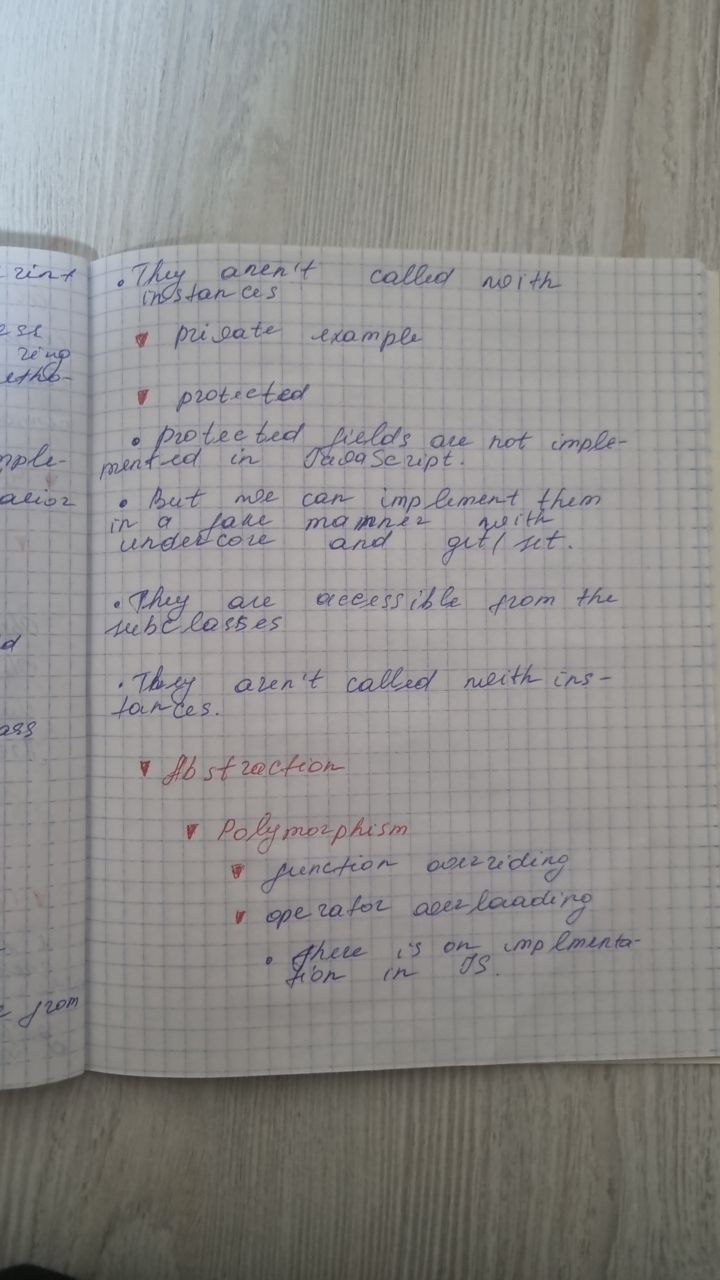 • They aren't called with
instances
▾ private example
▾ protected
• protected fields are not imple-
mented in JavaScript.
• But we can implement them
in a fake manner with
undercore and get/set.
• They are accessible from the
subclasses
• They aren't called with ins-
tances.
▾ Abstraction
▾ Polymorphism
▾ function overriding
▾ operator overloading
• there is on implmenta-
tion in JS.
ring
d
ass
from